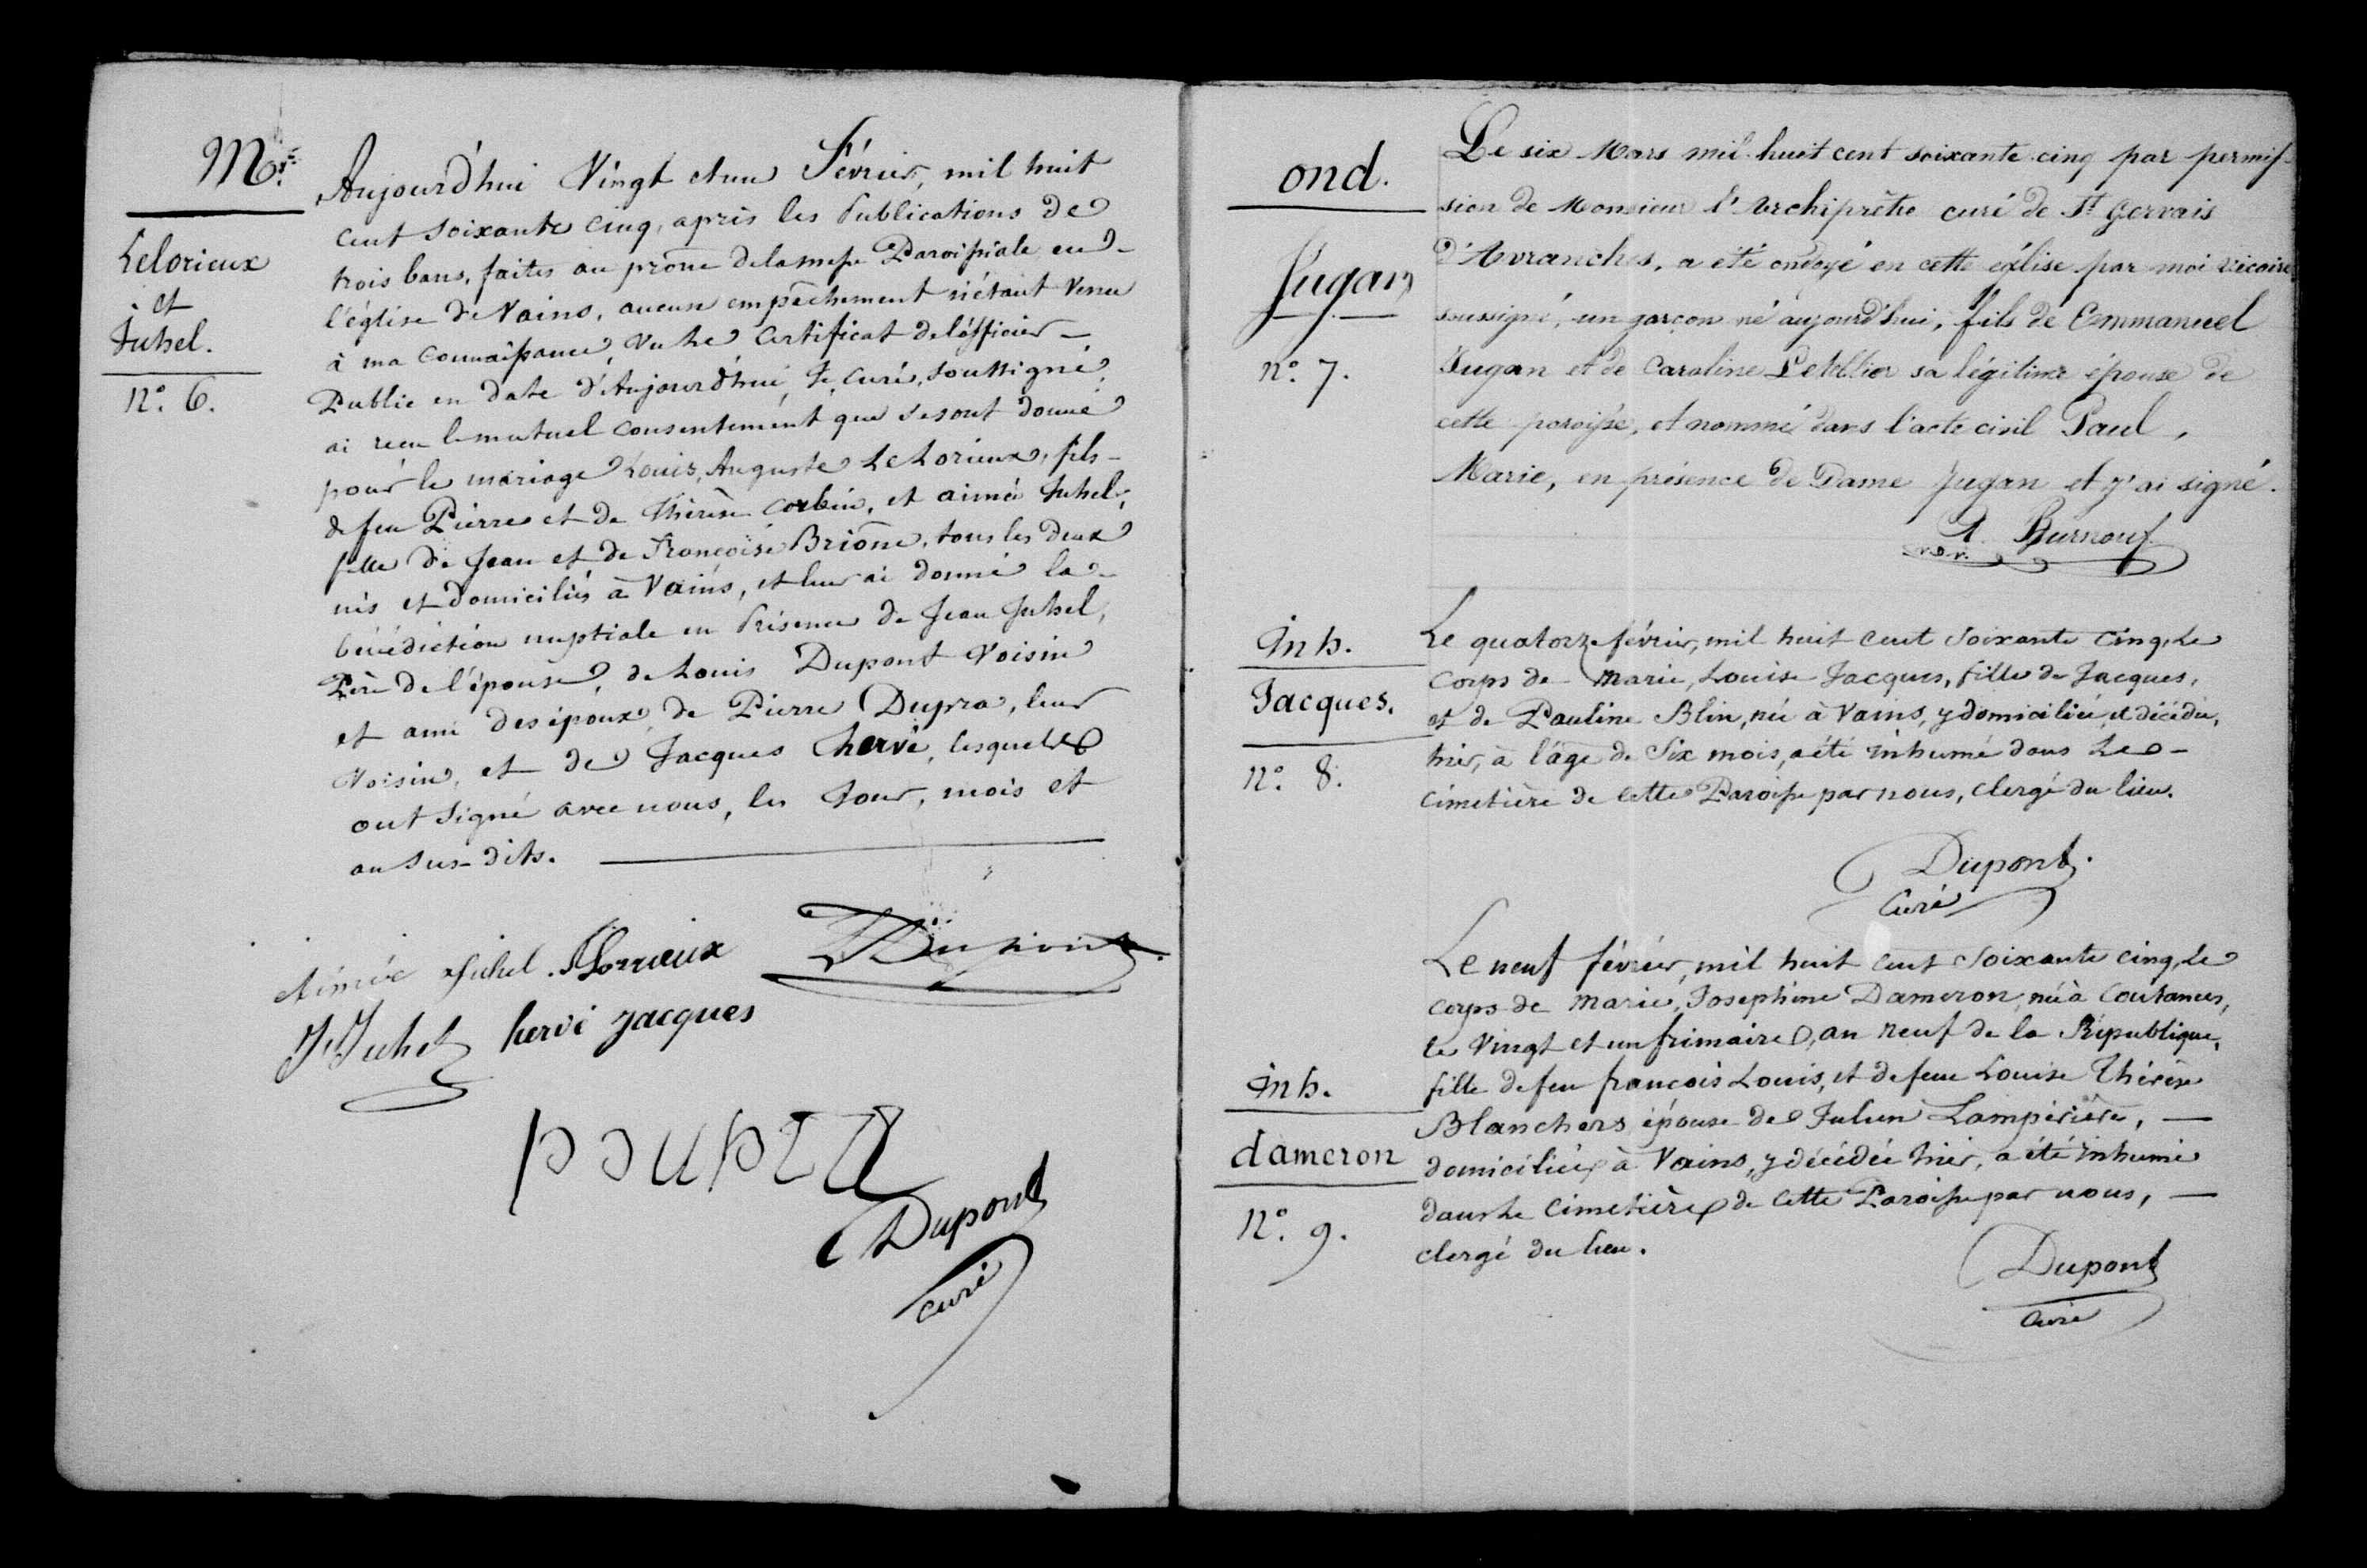 Mge.
Lelorieux
et
Juhel.
n°. 6.
Aujourd'hui Vingt et un Février, mil huit
cent soixante cinq, après les Publications de
trois bans, faites au prône de la messe Paroissiale en
l'église de Vains, aucun empêchement n'étant venu
à ma connaissance, vu le certificat de l'officier
Public en date d'Aujourd'hui, Je, Curé, soussigné
ai reçu le mutuel consentement que se sont donné
pour le mariage Louis, Auguste Lelorieux, fils
de feu Pierre et de Thérèse Corbin, et aimée Juhel,
fille de Jean et de Françoise Brione, tous les deux
nés et domiciliés à Vains, et leur ai donné la
bénédiction nuptiale en Présence de Jean Juhel,
Père de l'épouse, de Louis Dupont Voisin
et ami des époux, de Pierre Dupra, leur
Voisin, et de Jacques hervé, lesquels
ont signé avec nous, les Jour, mois et
an sus-dits.
Aimée Juhel. Lorieux Dupont
J Juhel hervé jacques
Dupont
curé
ond.
Jugan
n°. 7.
Le six Mars mil huit cent soixante cinq par permis-
sion de Monsieur l'Archiprêtre curé de St Gervais
d'Avranches, a été ondoyé en cette église par moi vicaire
soussigné, un garçon né aujourd'hui, fils de Emmanuel
Jugan et de Caroline Letellier sa légitime épouse de
cette paroisse, et nommé dans l'acte civil Paul,
Marie, en présence de Dame Jugan et j'ai signé.
A. Burnouf
v.d.v.
inh.
Jacques.
n°. 8.
Le quatorze février, mil huit cent soixante cinq, le
corps de Marie, Louise Jacques, fille de Jacques,
et de Pauline Blin, née à Vains, y domiciliée, et décédée,
hier, à l'âge de Six mois, a été inhumé dans Le
cimetière de cette Paroisse par nous, clergé du lieu.
Dupont.
Curé
inh.
dameron
n°. 9.
Le neuf février, mil huit cent soixante cinq, le
corps de marie, Josephine Dameron, née à Coutances,
le Vingt et un frimaire, an neuf de la République,
fille de feu françois Louis, et de feue Louise Thérèse
Blanchers, épouse de Julien Lampérière,
domiciliée à Vains, y décédée hier, a été inhumé
dans Le Cimetière de cette Paroisse par nous,
clergé du lieu.
Dupont
curé